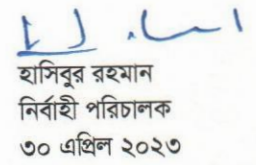 হাসিবুর রহমান
নির্বাহী পরিচালক
৩০ এপ্রিল ২০২৩